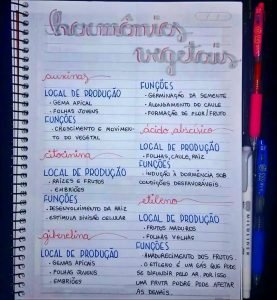 hormônios
vegetais
auxinas
LOCAL DE PRODUÇÃO
- GEMA APICAL
- FOLHAS JOVENS
FUNÇÕES
- CRESCIMENTO E MOVIMEN-
TO DO VEGETAL
citocinina
LOCAL DE PRODUÇÃO
- RAÍZES E FRUTOS
- EMBRIÕES
FUNÇÕES
- DESENVOLVIMENTO DA RAIZ
- ESTIMULA DIVISÃO CELULAR
giberelina
LOCAL DE PRODUÇÃO
- GEMAS APICAIS
- FOLHAS JOVENS
- EMBRIÕES
FUNÇÕES
- GERMINAÇÃO DA SEMENTE
- ALONGAMENTO DO CAULE
- FORMAÇÃO DE FLOR/FRUTO
ácido abscísico
LOCAL DE PRODUÇÃO
- FOLHAS, CAULE, RAIZ
FUNÇÕES
- INDUÇÃO À DORMÊNCIA SOB
CONDIÇÕES DESFAVORÁVEIS
etileno
LOCAL DE PRODUÇÃO
- FRUTOS MADUROS
- FOLHAS VELHAS
FUNÇÕES
- AMADURECIMENTO DOS FRUTOS
- O ETILENO É UM GÁS QUE PODE
SE DIFUNDIR PELO AR, POR ISSO
UMA FRUTA PODRE PODE AFETAR
AS DEMAIS.